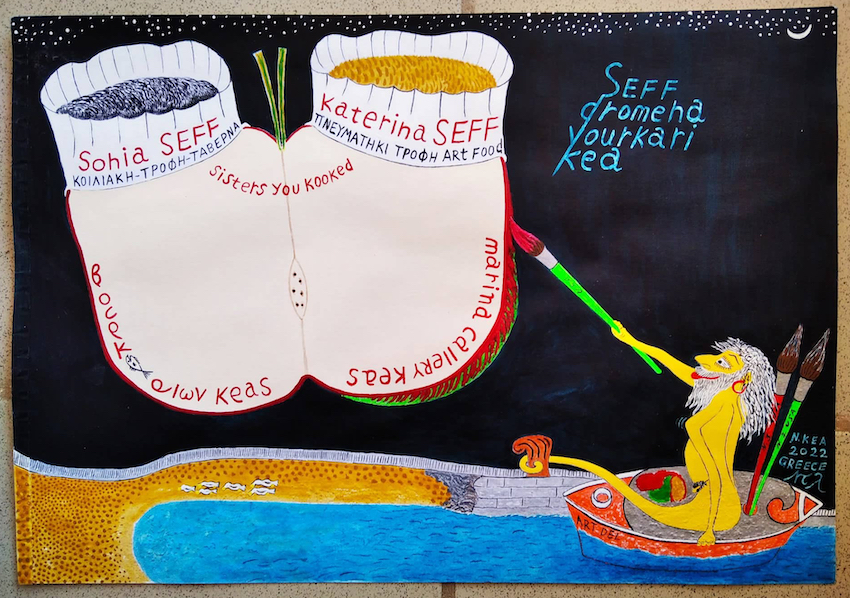 Sohia SEFF
ΚΟΙΛΙΑΚΗ-ΤΡΟΦΗ-ΤΑΒΕΡΝΑ
Katerina SEFF
ΠΝΕΥΜΑΤΗΚΙ ΤΡΟΦΗ Art FOOd
Sisters you Kooked
SEFF
dromena
yourkari
kea
marina callery keas
keas
ART-DEL
N.KEA
2022
GREECE